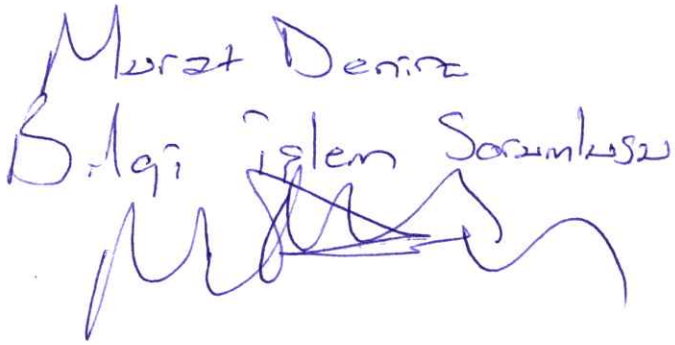 Murat Deniz
Bilgi işlem Sorumlusu